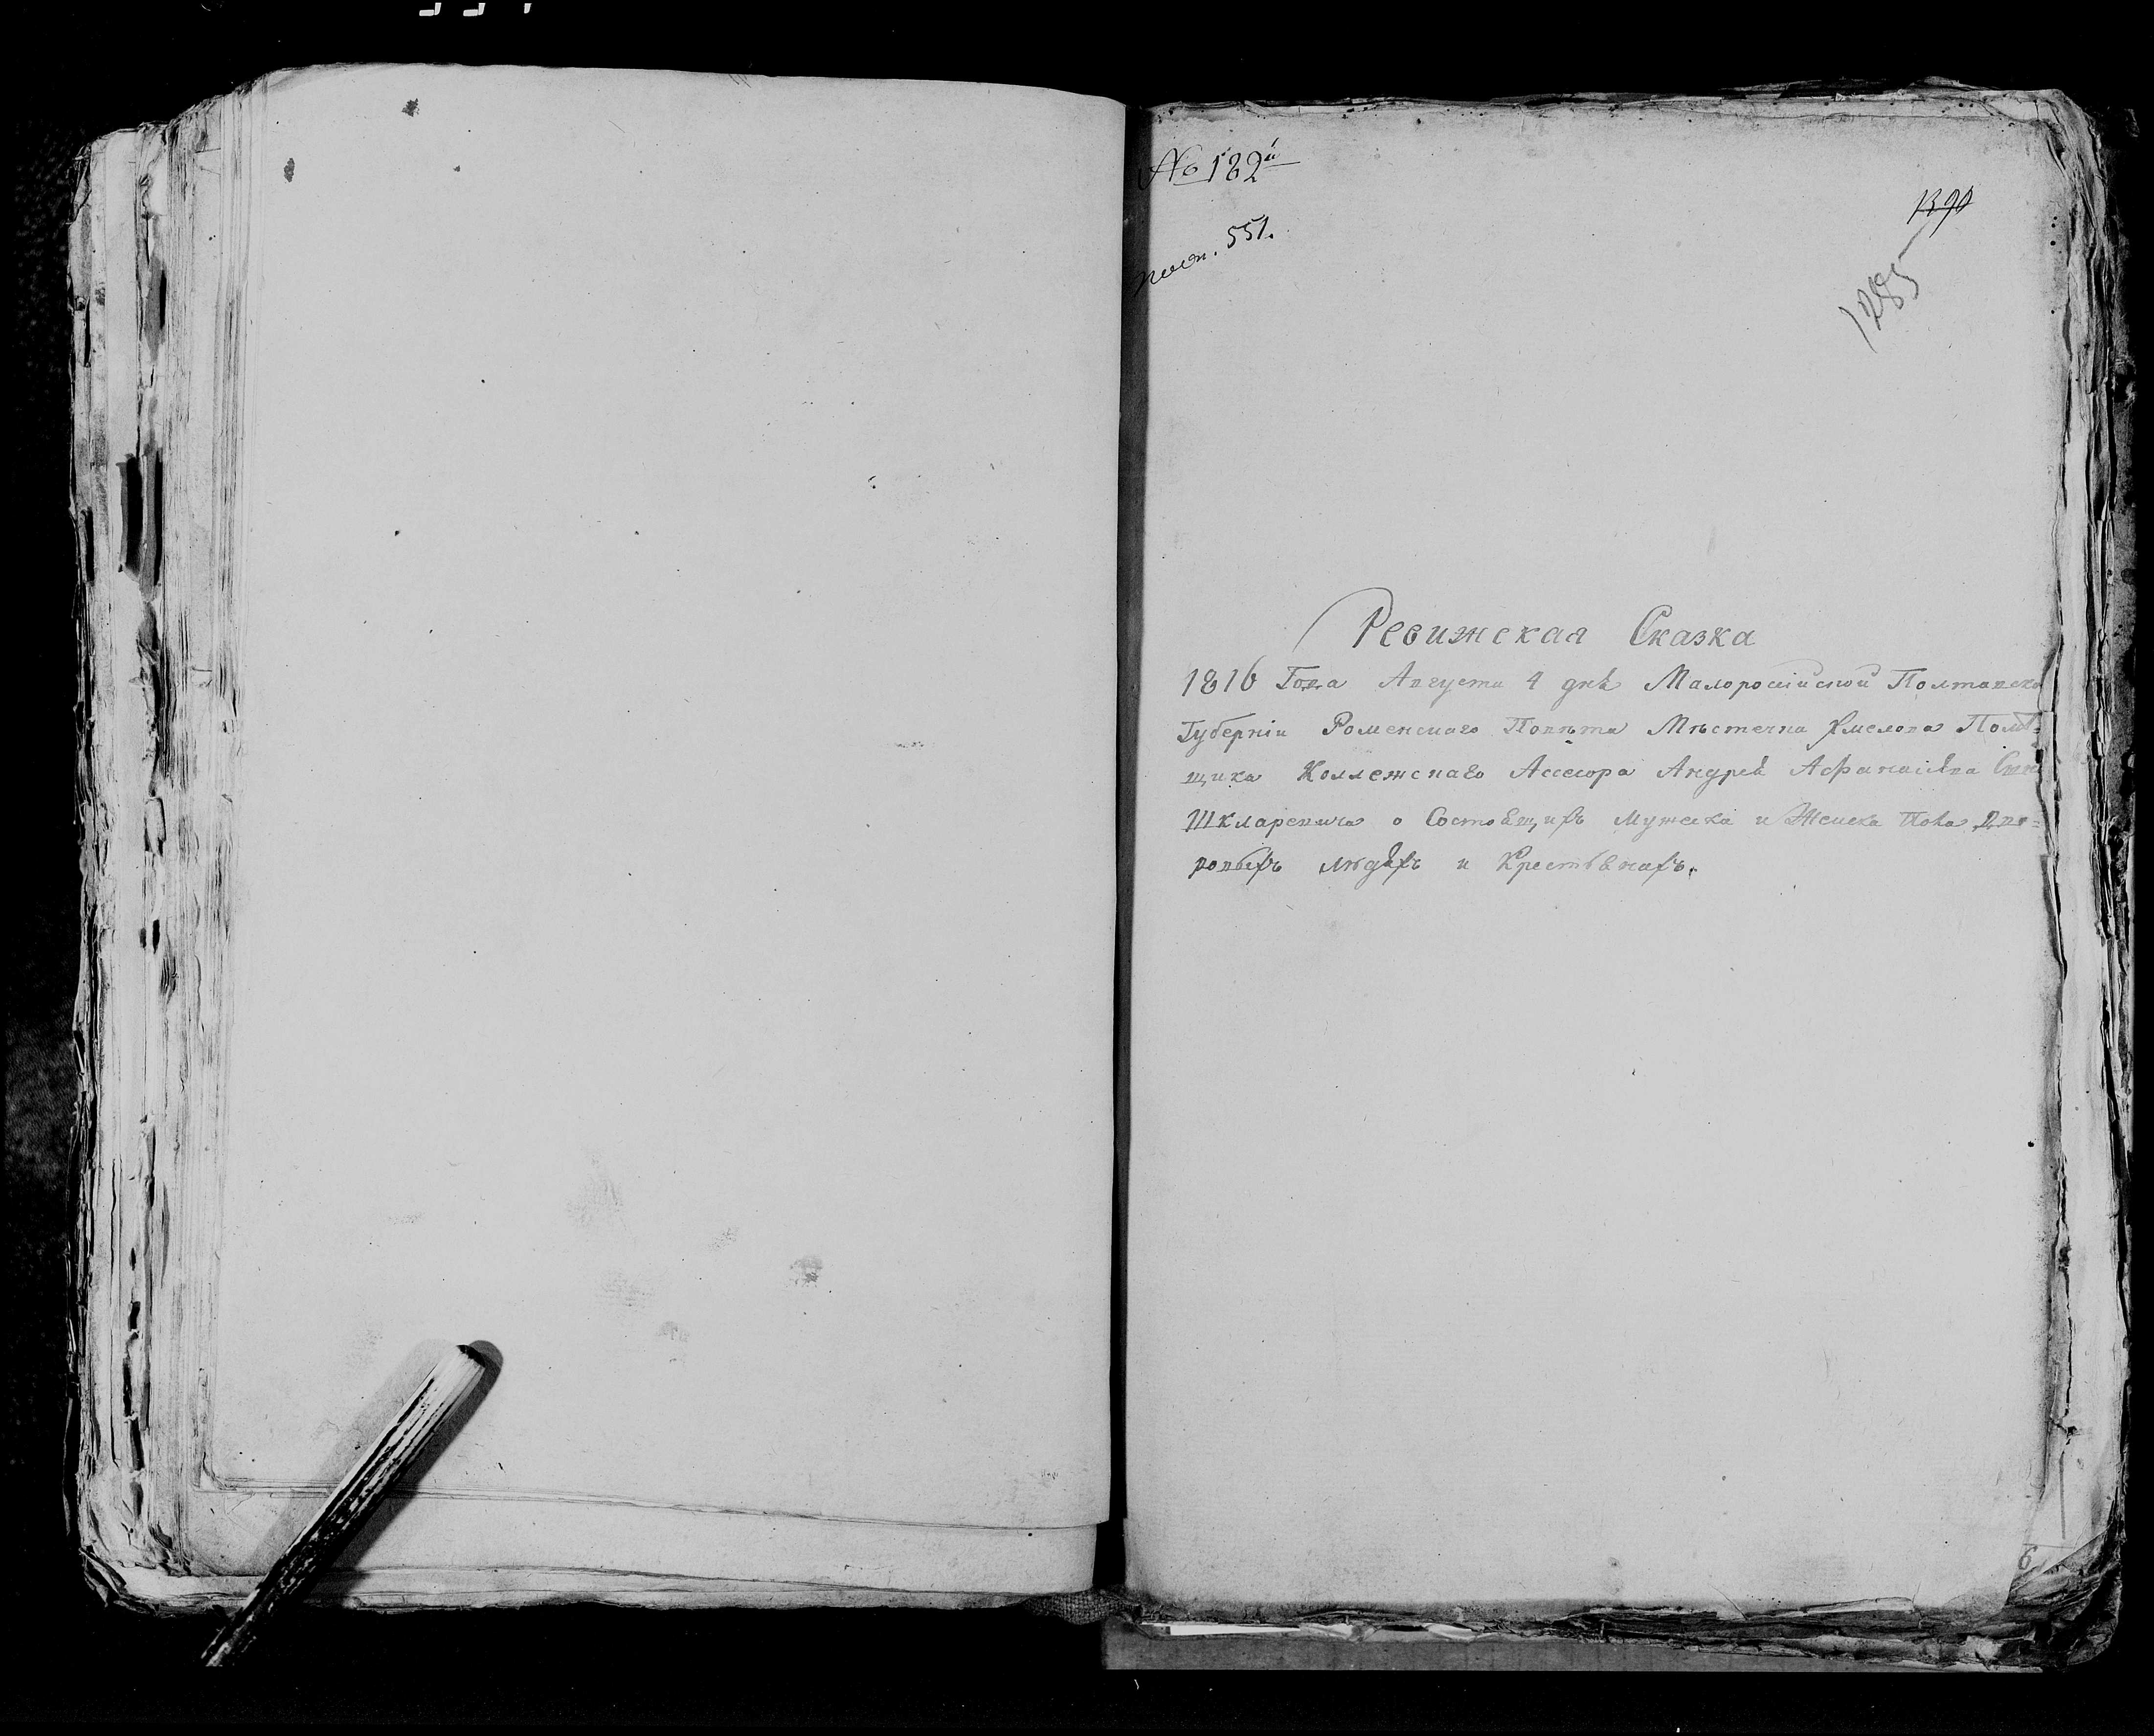 № 182й
551.
1390
1285
Ревижская Сказка
1816 Года Августа 4 дня Малоросіиской Полтавско
Губерніи Роменского Повѣта Мѣстечка Хмелова Помѣ=
щика Коллежского Ассесора Андрея Афанасіева Сына
Шкларевича о Состоящихъ Мужеска и Женска Пола дво=
ровыхъ людяхъ и Крестьянахъ.
6